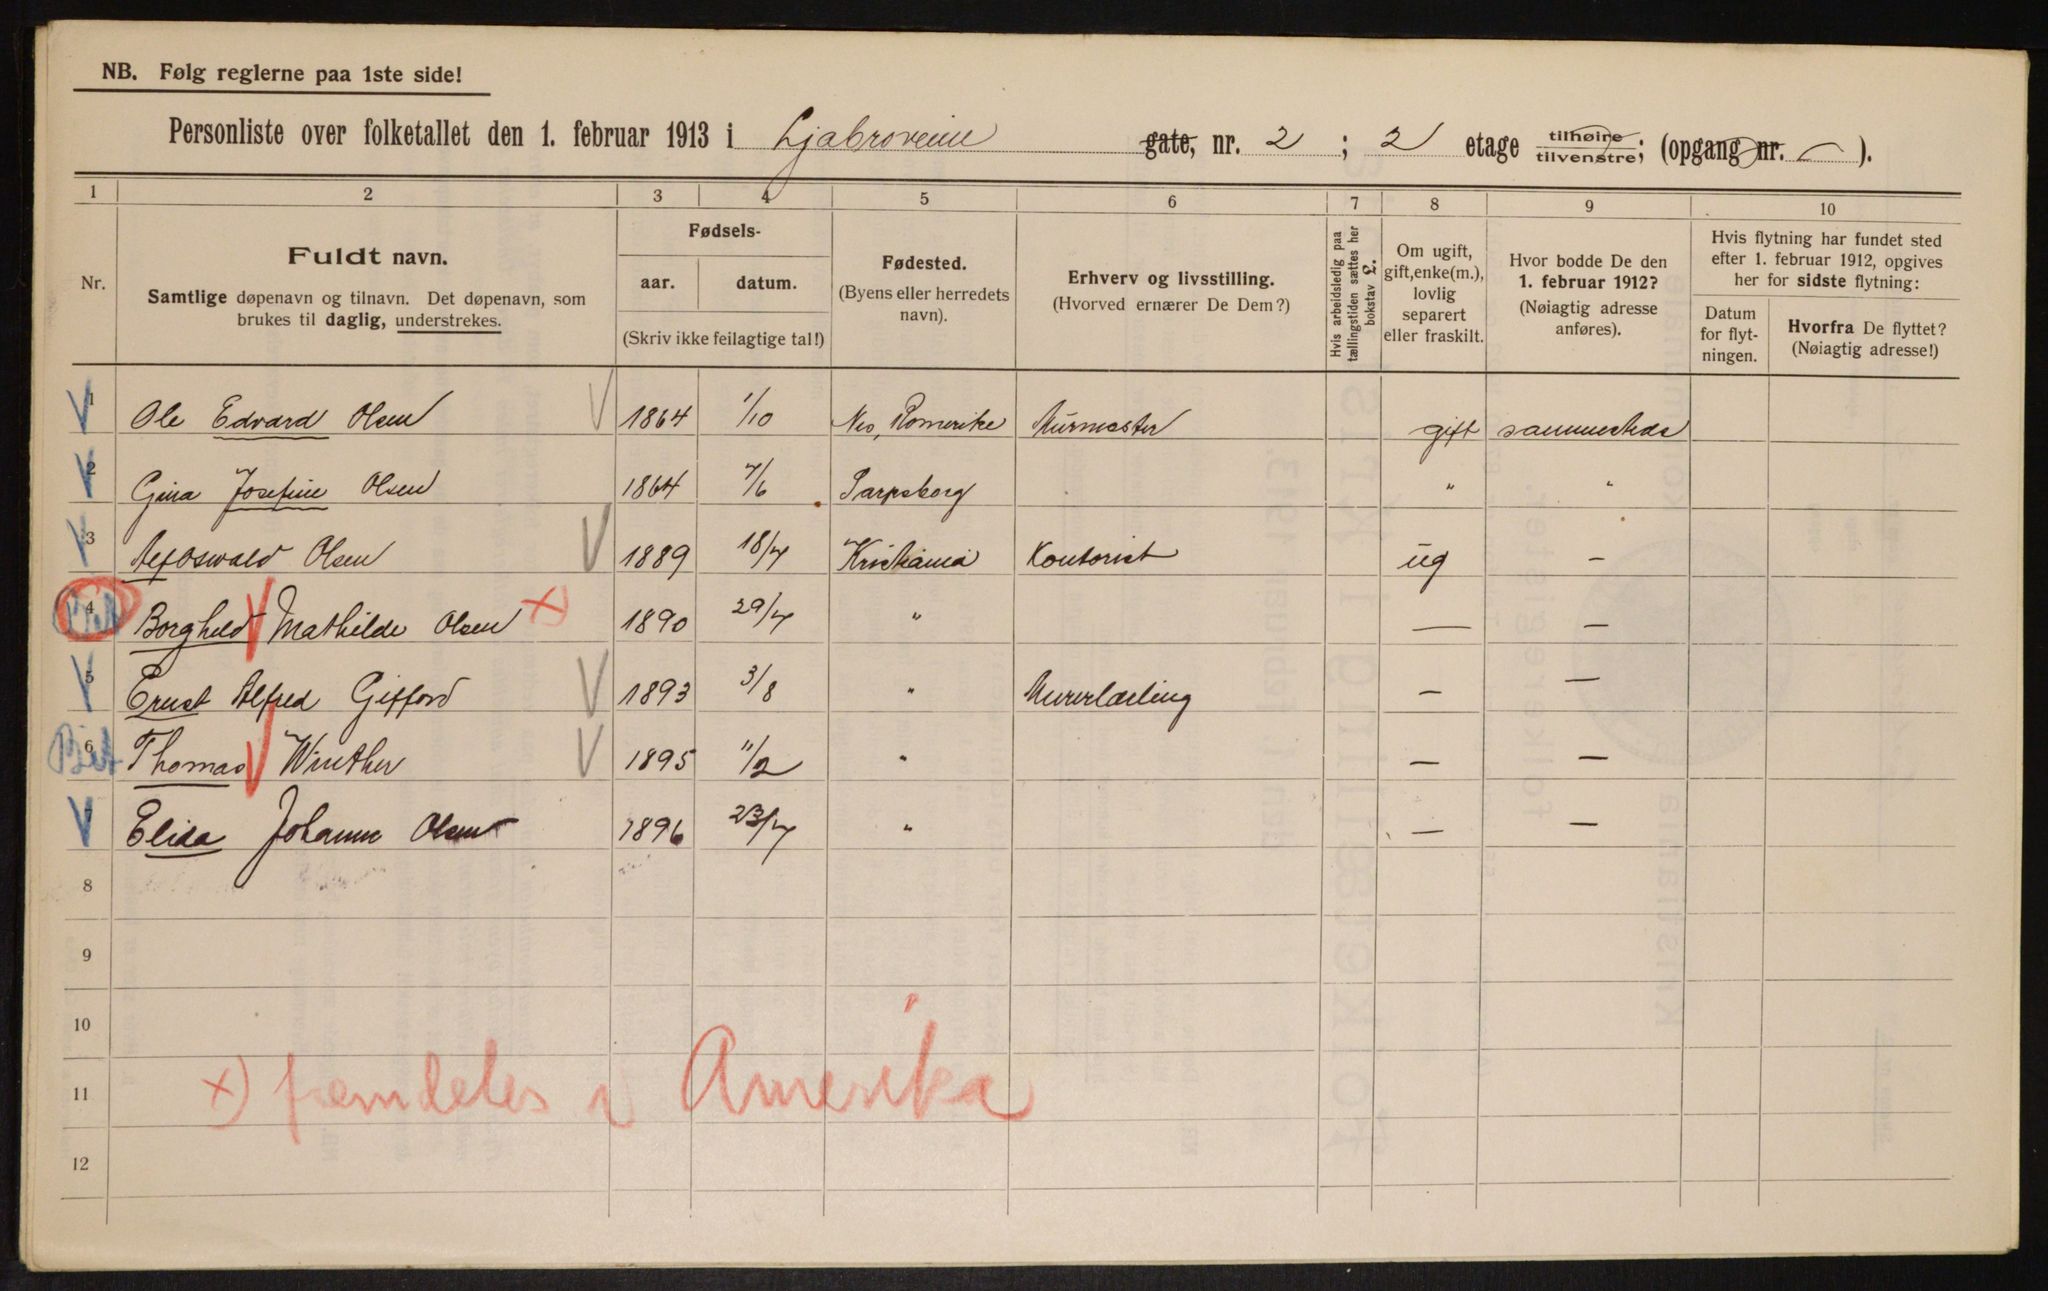 NB. Følg reglerne paa 1ste side!
Personliste over folketallet den 1. februar 1913 i Ljabroveien gate, nr. 2 ; 2 etage tilhøire tilvenstre; (opgang nr. – ).
1 2 3 4 5 6 7 8 9 10
Nr.
Fuldt navn.
Samtlige døpenavn og tilnavn. Det døpenavn, som
brukes til daglig, understrekes.
Fødsels-
aar. datum.
(Skriv ikke feilagtige tal!)
Fødested.
(Byens eller herredets
navn).
Erhverv og livsstilling.
(Hvorved ernærer De Dem?)
Hvis arbeidsledig paa
tællingstiden sættes her
bokstav £.
Om ugift,
gift, enke(m.),
lovlig
separert
eller fraskilt.
Hvor bodde De den
1. februar 1912?
(Nøiagtig adresse
anføres).
Hvis flytning har fundet sted
efter 1. februar 1912, opgives
her for sidste flytning:
Datum
for flyt-
ningen.
Hvorfra De flyttet?
(Nøiagtig adresse!)
1 Ole Edvard Olsen 1864 1/10 Nes, Romerike Murmester gift sammesteds
2 Gina Josefine Olsen 1864 7/6 Sarpsborg " "
3 Alf Oswald Olsen 1889 18/7 Kristiania Kontorist ug –
4 Borghild Mathilde Olsen x) 1890 29/7 " — –
5 Ernst Alfred Gifford 1893 3/8 " Murerlærling – –
6 Thomas Winther 1895 11/2 " – –
7 Elida Johanne Olsen 1896 23/7 " – –
8
9
10
11 x) fremdeles i Amerika
12